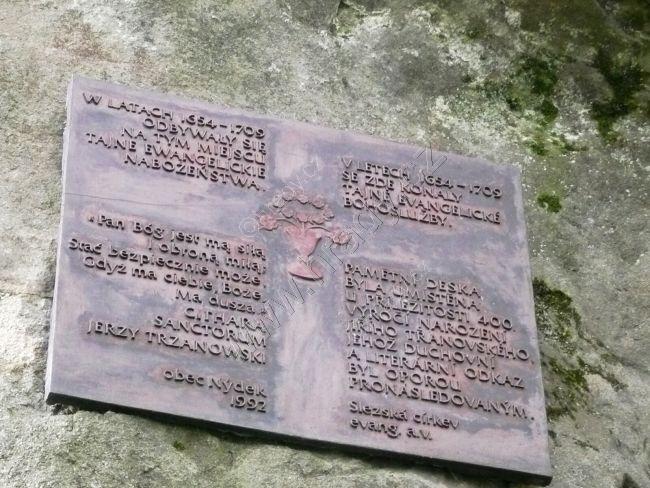 W LATACH 1654-1709
ODBYWAŁY SIĘ
NA TYM MIEJSCU
TAJNE EWANGELICKIE
NABOŻEŃSTWA.
„Pan Bóg jest mą siłą
i obroną miłą,
Stać bezpiecznie może,
Gdyż ma ciebie, Boże,
Ma dusza."
CITHARA
SANCTORUM
JERZY TRZANOWSKI
obec Nýdek
1992
V LETECH 1654-1709
SE ZDE KONALY
TAJNÁ EVANGELICKÉ
BOHOSLUŽBY.
PAMĚTNÍ DESKA
BYLA UMÍSTĚNA
U PŘÍLEŽITOSTI 400.
VÝROČÍ NAROZENÍ
JIŘÍHO TŘANOVSKÉHO,
JEHOŽ DUCHOVNÍ
A LITERÁRNÍ ODKAZ
BYL OPOROU
PRONÁSLEDOVANÝM.
Slezská církev
evang. a.v.